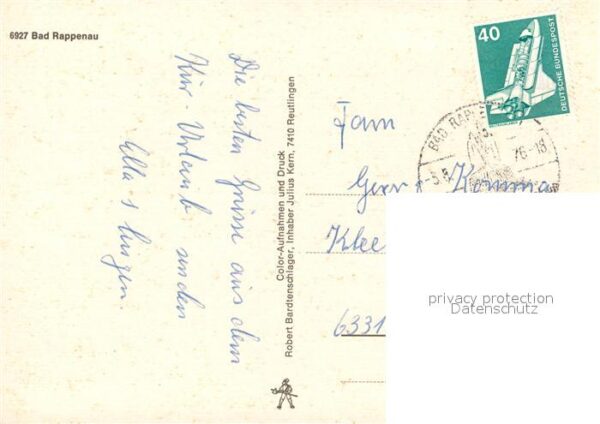 6927 Bad Rappenau
Die besten Grüsse aus dem
Kur-Urlaub senden
Ella +
Color-Aufnahmen und Druck
Robert Bardtenschlager, Inhaber Julius Kern, 7410 Reutlingen
40
DEUTSCHE BUNDESPOST
BAD RAP
76-18
Fam
Klee
6331
privacy protection
Datenschutz